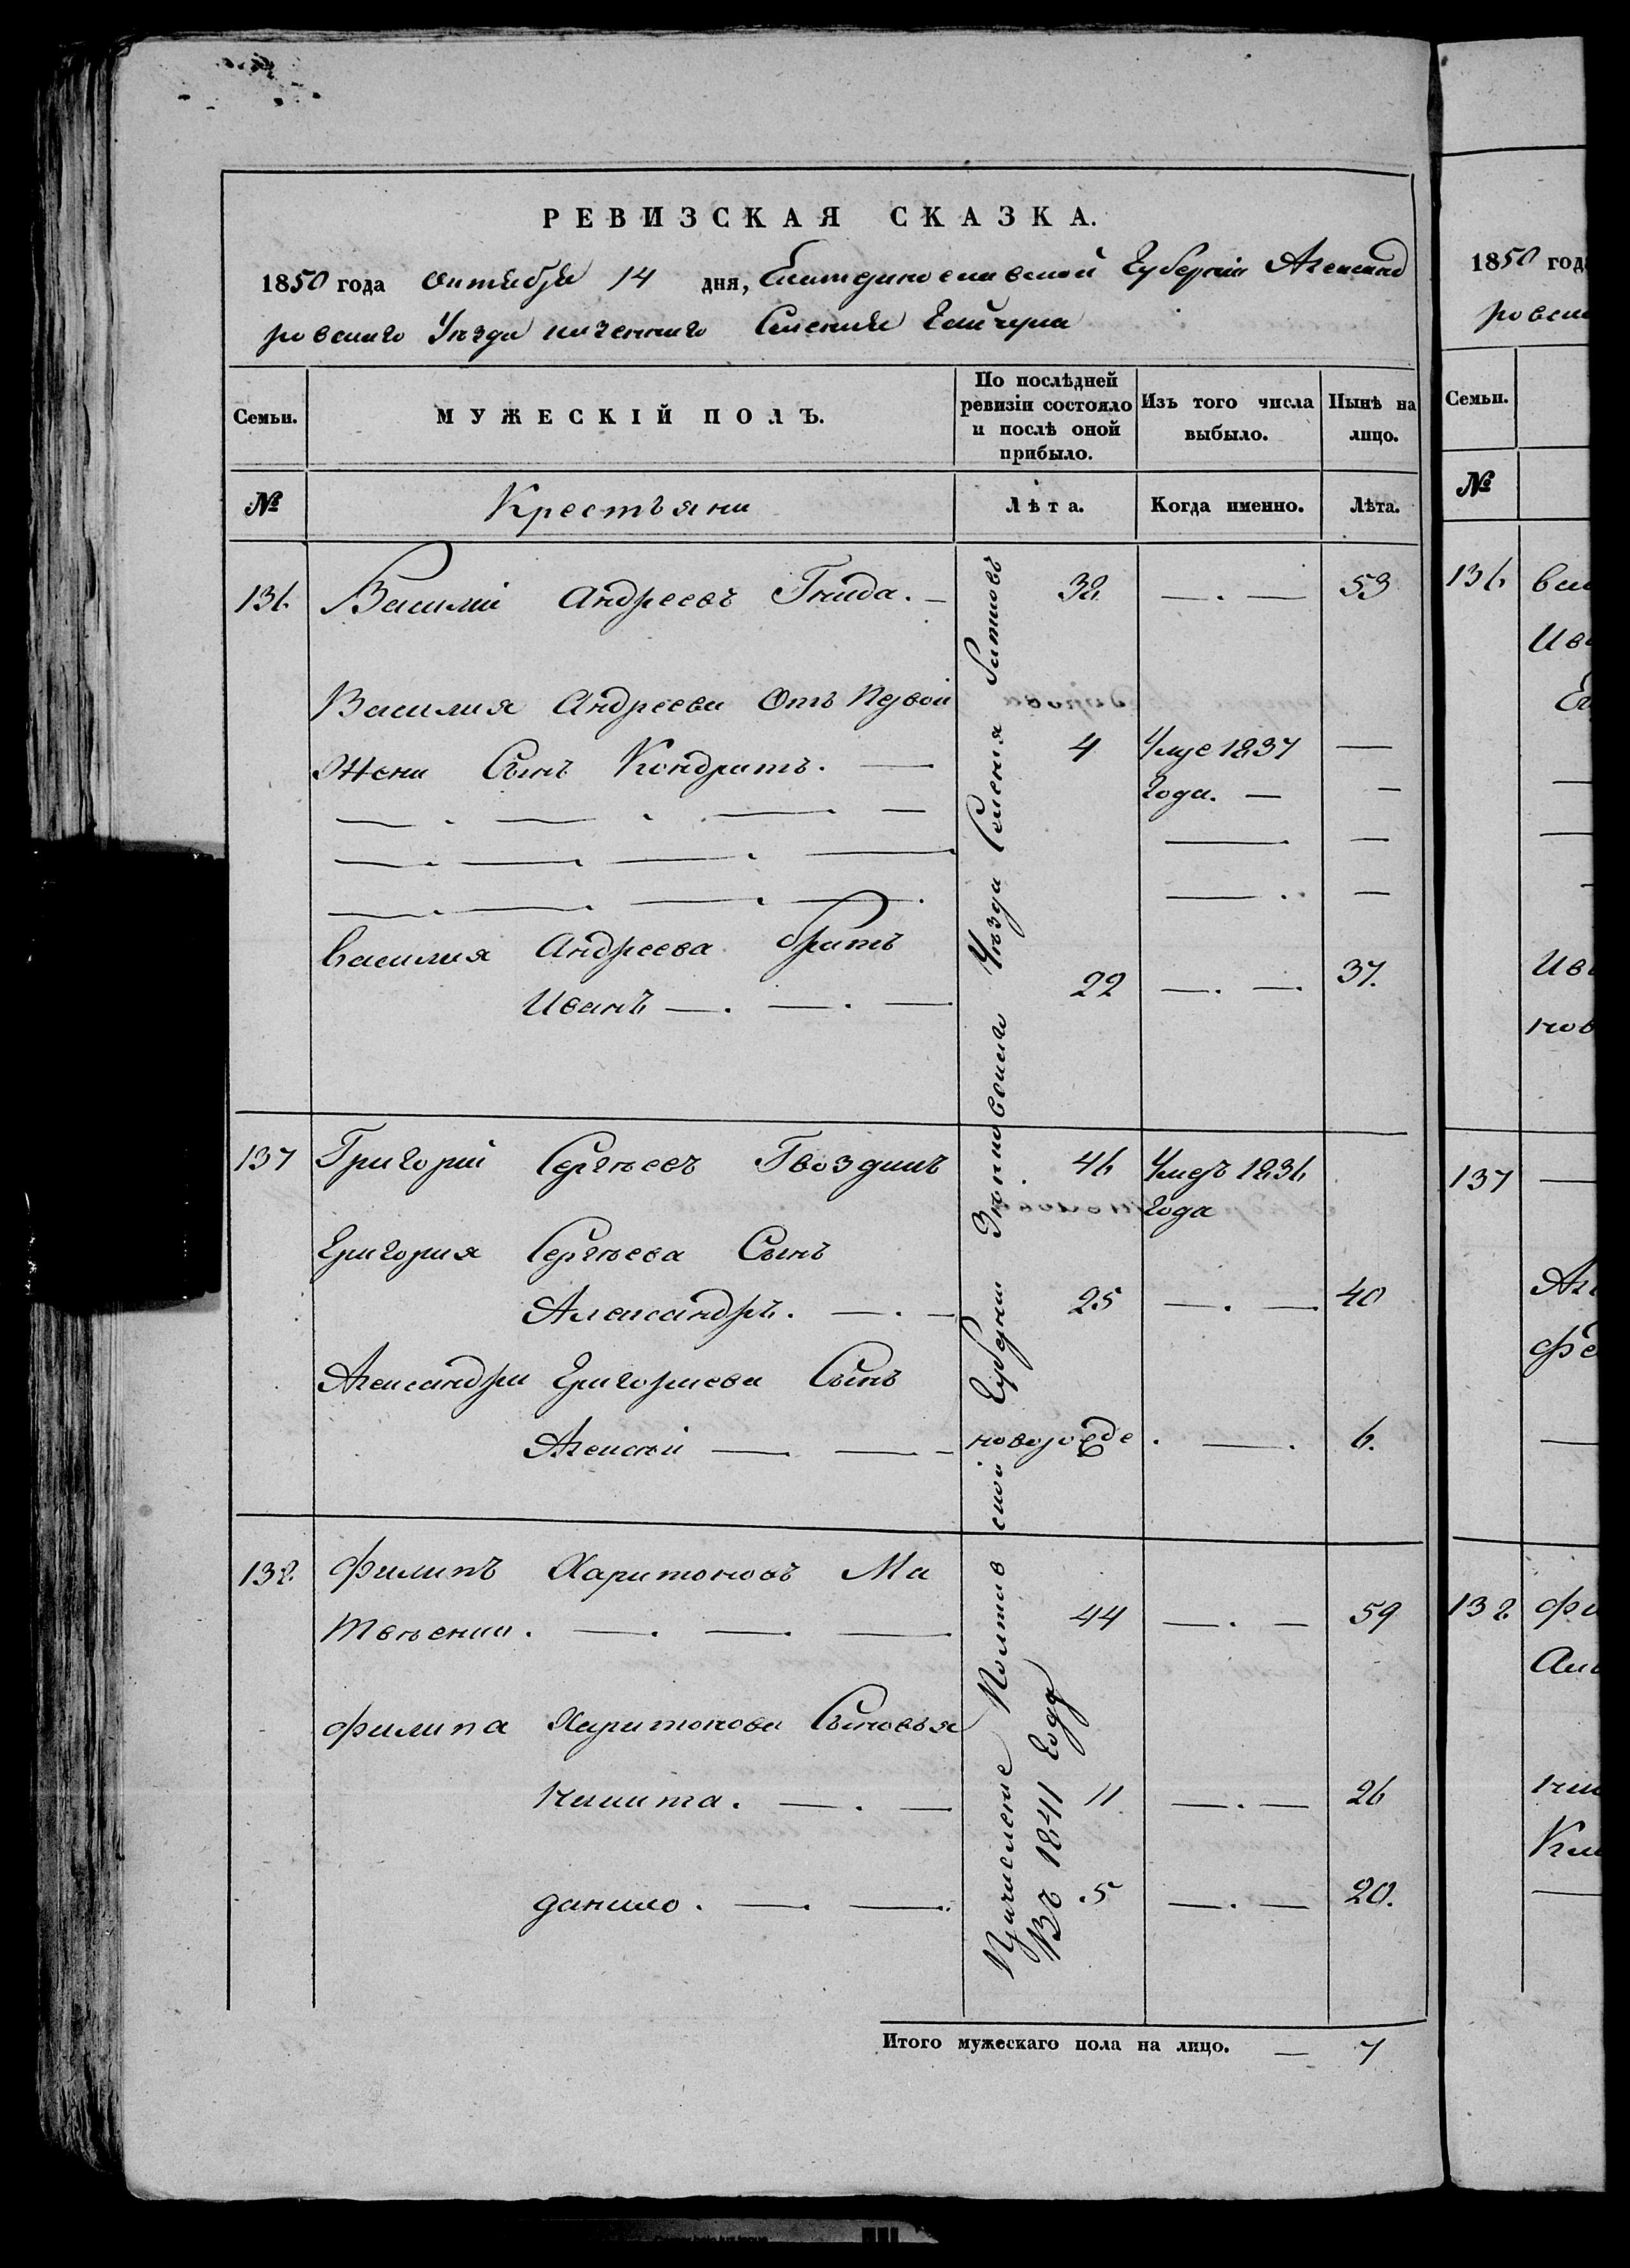 РЕВИЗСКАЯ СКАЗКА.
1850 года Октября 14 дня, Екатеринославской Губернiи Александ
ровскаго Уѣзда казеннаго Селенiя
Семьи.
МУЖЕСКIЙ ПОЛЪ.
По послѣдней ревизiи состояло и послѣ оной прибыло.
Изъ того числа выбыло.
Нынѣ на лицо.
№
Крестьяни
Лѣта.
Когда именно.
Лѣта.
136 Василiй Андреевъ Гнида. — 38 —.— 53
Василия Андреева Отъ Первой
Жени Сынъ Кондратъ. — 4 Умре 1837 —
года. — —
Василия Андреева братъ
Иванъ —. —. — 22 —. —. 37.
137 Григорiй Сергѣевъ Гвоздикъ 46 Умеръ 1836
года
Григория Сергѣева Сынъ
Александръ. —. — 25 —. —. 40
Александра Григориева Сынъ
Алексѣй — — новорожде. —. 6.
138. Филипъ Харитоновъ Ма
твѣенко. —. —. — 44 —. — 59
Филипа Харитонова Сыновья
Никита. —. — 11 —.— 26
данило. —. —. 5 —.— 20.
Причисленые Полтав ской Губернии Зѣньковскаго Уѣзда Селения
Въ 1841 Году
Итого мужескаго пола на лицо. — 7
1850 год
ровска
Семьи.
№
136 вас
Ива
Ива
нов
137
Але
Фе
138 Фи
Ник